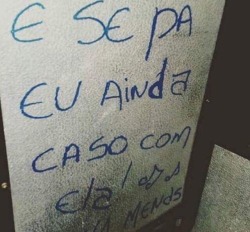 E SE PA
EU AiNdA
CASO COM
ElA!
MENOS